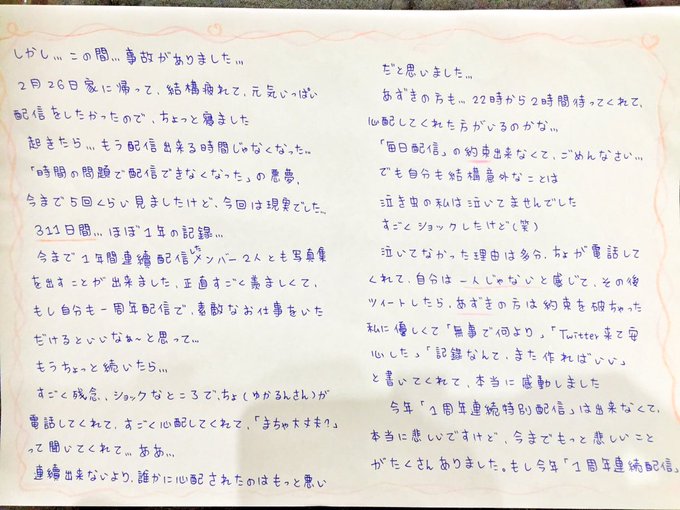 しかし… この間… 事故がありました…
2月26日家に帰って、結構疲れて、元気いっぱい
配信をしたかったので、ちょっと寝ました
起きたら… もう配信出来る時間じゃなくなった…
「時間の問題で配信できなくなった」の悪夢、
今まで5回くらい見ましたけど、今回は現実でした…
311日間… ほぼ1年の記録…
今まで1年間連続配信したメンバー2人とも写真集
を出すことが出来ました、正直すごく羨ましくて、
もし自分も一周年配信で、素敵なお仕事をいた
だけるといいなぁ〜と思って…
もうちょっと続いたら…
すごく残念、ショックなところで、ちょ(ゆかるんさん)が
電話してくれて、すごく心配してくれて、「まちゃ大丈夫?」
って聞いてくれて… ああ…
連続出来ないより、誰かに心配されたのはもっと悪い
だと思いました…
あずきの方も… 22時から2時間待ってくれて、
心配してくれた方がいるのかな…
「毎日配信」の約束出来なくて、ごめんなさい…
でも自分も結構意外なことは
泣き虫の私は泣いてませんでした
すごくショックしたけど(笑)
泣いてなかった理由は多分、ちょが電話して
くれて、自分は一人じゃないと感じて、その後
ツイートしたら、あずきの方は約束を破ちゃった
私に優しくて「無事で何より」「Twitter来て安
心した」「記録なんて、また作ればいい」
と書いてくれて、本当に感動しました
今年「1周年連続特別配信」は出来なくて、
本当に悲しいですけど、今までもっと悲しいこと
がたくさんありました。もし今年「1周年連続配信」